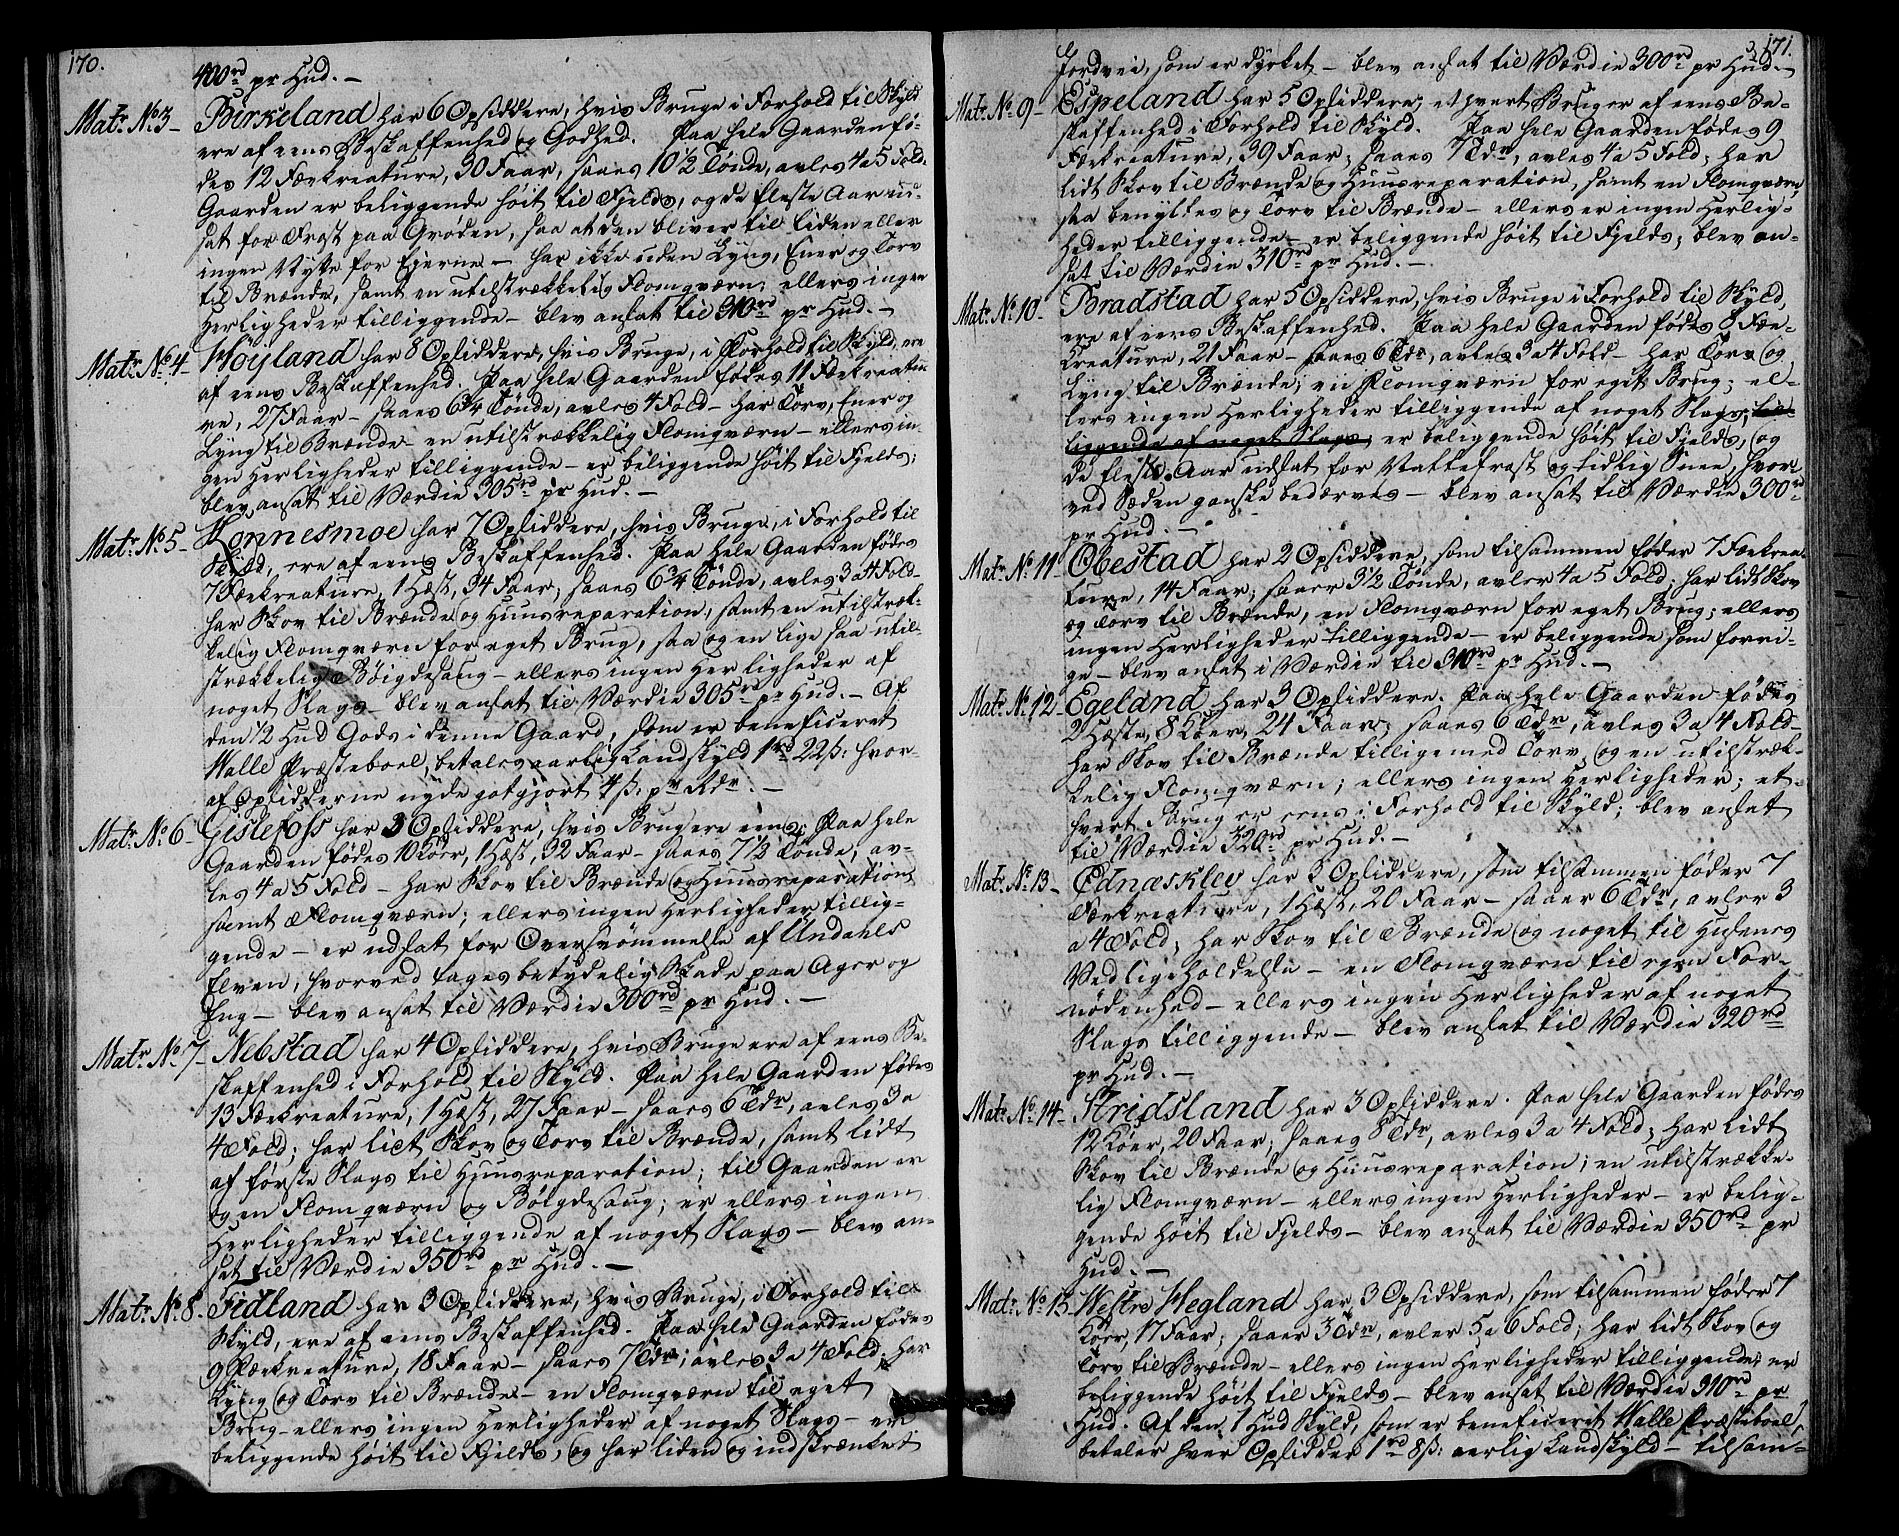 170.
400rd pr Hud. –
Matr. No 3 – Birkeland har 6 Opsiddere, hvis Bruge i Forhold til Skyld
ere af eens Beskaffenhed og Godhed. Paa hele Gaarden fø-
des 12 Fækreature, 30 Faar, saaes 10 1/2 Tønde, avles 4 a 5 Fold.
Gaarden er beliggende høit til Fjelds, og de fleste Aar ud-
sat for Frost paa Grøden, saa at den bliver til liden eller
ingen Nytte for Ejerne – har ikke uden Lyng, Ener og Torv
til Brænde, samt en utilstrækkelig Flomqværn; ellers ingen
Herligheder tilliggende – blev ansat til 310rd pr Hud. –
Matr. No 4 – Høyland har 8 Opsiddere, hvis Bruge, i Forhold til Skyld, ere
af eens Beskaffenhed. Paa hele Gaarden fødes 11 Fækreatu-
re, 27 Faar – saaes 6 3/4 Tønde, avles 4 Fold – har Torv, Ener og
Lyng til Brænde – en utilstrækkelig Flomqværn – ellers in-
gen Herligheder tilliggende – er beliggende høit til Fjelds;
blev ansat til Værdie 305rd pr Hud. –
Matr. No 5 – Konnesmoe har 7 Opsiddere, hvis Bruge, i Forhold til
Skyld, ere af eens Beskaffenhed. Paa hele Gaarden fødes
7 Fækreature, 1 Hæst, 34 Faar, saaes 6 3/4 Tønde, avles 3 a 4 Fold –
har Skov til Brænde og Huusreparation, samt en utilstræk-
kelig Flomqværn for eget Brug, saa og en lige saa util-
strækkelig Bøigdesaug – ellers ingen Herligheder af
noget Slags – blev ansat til Værdie 305rd pr Hud. – Af
den 1/2 Hud Gods i denne Gaard, som er beneficeret
Halle Præsteboel, betales aarlig Landskyld 1rd 22ß: hvor-
af Opsidderne nyde gotgjort 4ß: pr Rdr. –
Matr. No 6 – Gislefoss har 3 Opsiddere, hvis Brug ere eens; Paa hele
Gaarden fødes 10 Køer, 1 Hæst, 32 Faar – saaes 7 1/2 Tønde, av-
les 4 a 5 Fold – har Skov til Brænde og Huusreparation,
samt Flomqværn; ellers ingen Herligheder tillig-
gende – er udsat for Oversvømmelse af Undahls
Elven, hvorved tages betydelig Skade paa Ager og
Eng – blev ansat til Værdie 300rd pr Hud. –
Matr No 7 – Nebstad har 4 Opsiddere, hvis Bruge ere af eens Be-
skaffenhed i Forhold til Skyld. Paa hele Gaarden fødes
13 Fækreature, 1 Hæst, 27 Faar – saaes 6 Tdr, avles 3 a
4 Fold; har lidt Skov og Torv til Brænde, samt lidt
af første Slags til Huusreparation; til Gaarden er
og en Flomqværn og Bøigdesaug; er ellers ingen
Herligheder tilliggende af noget Slags – blev an-
sat til Værdie 350rd pr Hud. –
Matr. No 8. Fidland har 3 Opsiddere, hvis Bruge, i Forhold til
Skyld, ere af eens Beskaffenhed. Paa hele Gaarden fødes
9 Fækreature, 18 Faar – saaes 7 Tdr, avles 3 a 4 Fold; har
Lyng og Torv til Brænde – en Flomqværn til eget
Brug – ellers ingen Herligheder af noget Slags – er
beliggende høit til Fjelds, og har liden og indskrænket
171.
Jordvei, som er dyrket – blev ansat til Værdie 300rd pr Hud. –
Matr. No 9 – Espeland har 5 Opsiddere; ethvert Brug er af eens Be-
skaffenhed i Forhold til Skyld. Paa hele Gaarden fødes 9
Fækreature, 39 Faar; saaes 7 Tdr, avles 4 a 5 Fold; har
lidt Skov til Brænde og Huusreparation, samt en Flomqværn,
saa benyttes og Torv til Brænde – ellers er ingen Herlig-
heder tilliggende – er beliggende høit til Fjelds; blev an-
sat til Værdie 310rd pr Hud. –
Matr. No 10 – Bradstad har 5 Opsiddere, hvis Bruge i Forhold til Skyld,
ere af eens Beskaffenhed. Paa hele Gaarden fødes 8 Fæe-
kreature, 21 Faar – saaes 6 Tdr, avles 3 a 4 Fold – har Torv og
Lyng til Brænde, en Flomqværn for eget Brug; el-
lers ingen Herligheder tilliggende af noget Slags; til-
liggende af noget Slags; er beliggende høit til Fjelds, og
de fleste Aar udsat for Nattefrost og tidlig Snee, hvor-
ved Sæden ganske bedærves – blev ansat til Værdie 300rd
pr Hud. –
Matr. No 11 – Obestad har 2 Opsiddere, som tilsammen føder 7 Fækrea-
ture, 14 Faar; saaer 3 1/2 Tønde, avler 4 a 5 Fold; har lidt Skov
og Torv til Brænde, en Flomqværn for eget Brug; ellers
ingen Herligheder tilliggende – er beliggende som forri-
ge – blev ansat i Værdie til 310rd pr Hud. –
Matr. No 12 – Egeland har 3 Opsiddere. Paa hele Gaarden fødes
2 Hæste, 8 Køer, 24 Faar; saaes 6 Tdr, avles 3 a 4 Fold –
har Skov til Brænde tilligemed Torv, og en utilstræk-
kelig Flomqværn; ellers ingen Herligheder; et-
hvert Brug er eens i Forhold til Skyld; blev ansat
til Værdie 320rd pr Hud. –
Matr. No 13 – Ednæsklev har 3 Opsiddere, som tilsammen føder 7
Fækreature, 1 Hæst, 20 Faar – saaer 6 Tdr, avler 3
a 4 Fold; har Skov til Brænde og noget til Husenes
Vedligeholdelse – en Flomqværn til egen For-
nødenhed – ellers ingen Herligheder af noget
Slags tilliggende – blev ansat til Værdie 320rd
pr Hud. –
Matr. No 14 – Kridsland har 3 Opsiddere. Paa hele Gaarden fødes
12 Køer, 20 Faar; saaes 8 Tdr, avles 3 a 4 Fold; har lidt
Skov til Brænde og Huusreparation; en utilstrække-
lig Flomqværn – ellers ingen Herligheder – er belig-
gende høit til Fjelds – blev ansat til Værdie 350rd pr
Hud. –
Matr. No 15. Westre Hegland har 3 Opsiddere, som tilsammen føder 7
Køer, 17 Faar; saaer 3 Tdr, avler 5 a 6 Fold; har lidt Skov og
Torv til Brænde – ellers ingen Herligheder tilliggende; er
beliggende høit til Fjelds – blev ansat til Værdie 310rd pr
Hud. Af den 1 Hud Skyld, som er beneficeret Halle Præsteboel,
betaler hver Opsidder 1rd 8ß: aarlig Landskyld – tilsam-